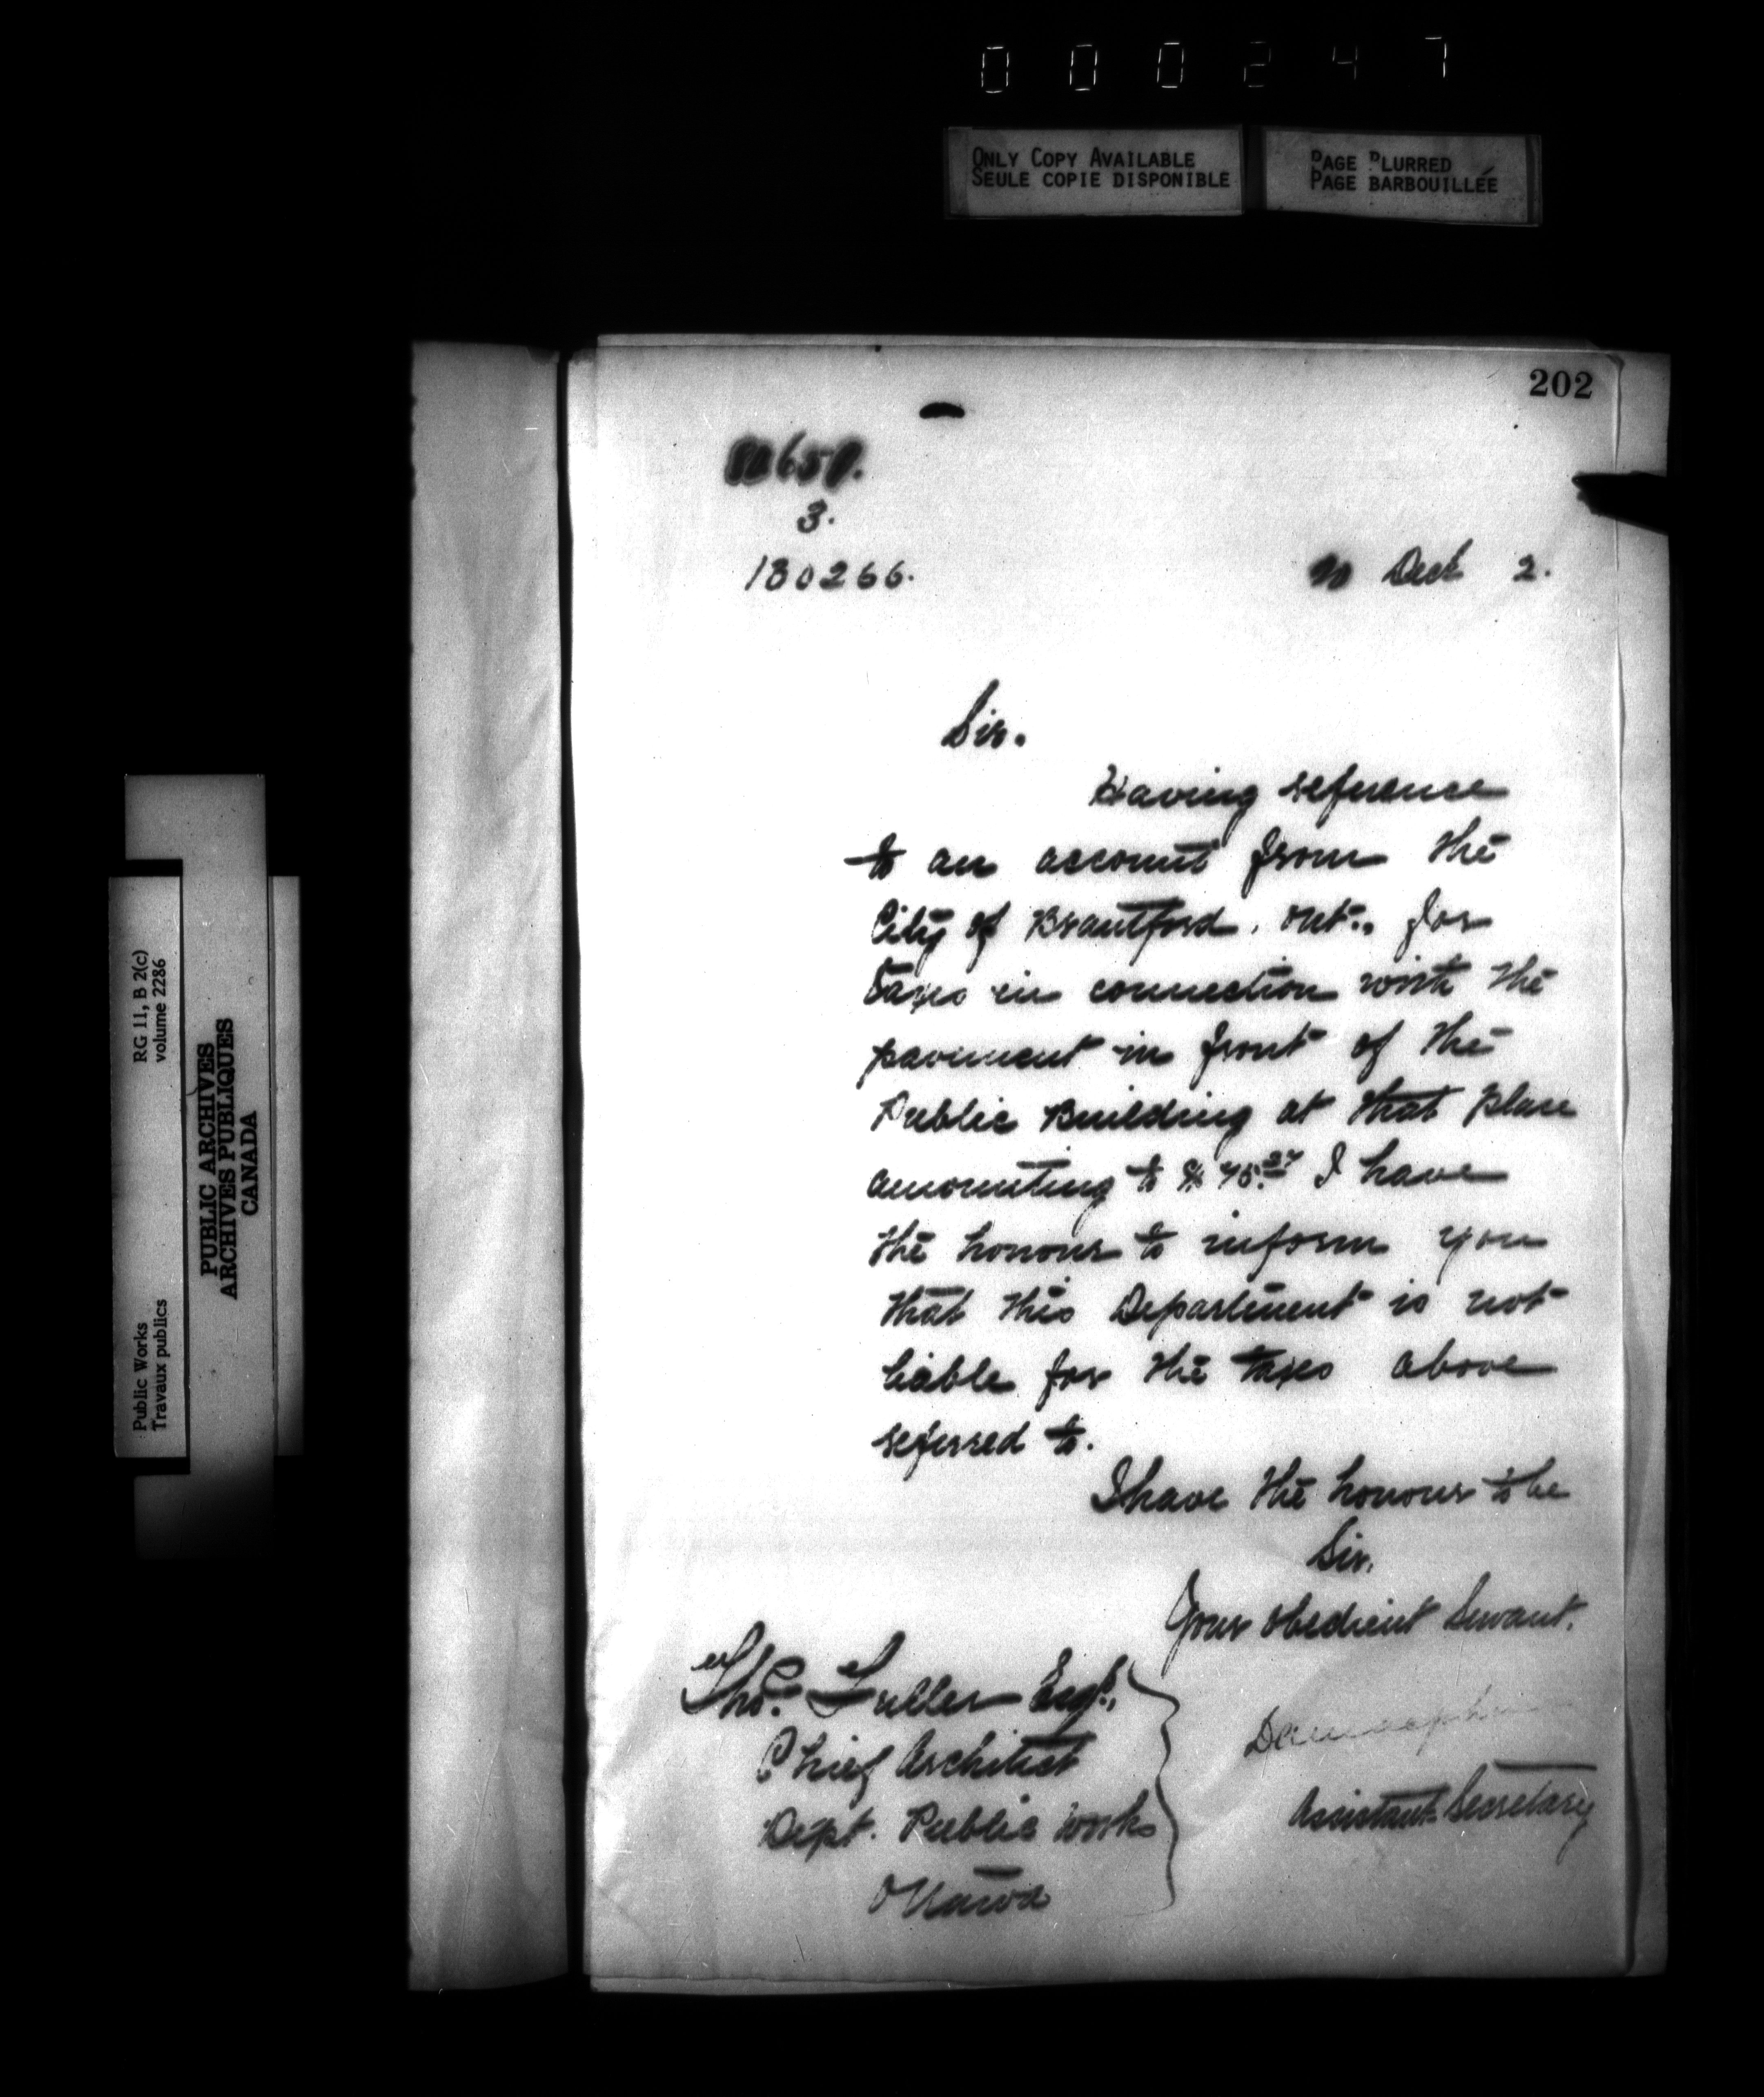 000247
ONLY COPY AVAILABLE
SEULE COPIE DISPONIBLE
PAGE BLURRED
PAGE BARBOUILLÉE
202
3.
130266.
Dect 2.
Sir.
Having reference
to an account from the
City of Brantford, Ont., for
taxes in connection with the
pavement in front of the
Public Building at that place
amounting to $ I have
the honour to inform you
that this Department is not
liable for the taxes above
referred to.
I have the honour to be
Sir,
Your obedient Servant.
Thos. Fuller Esqr.,
Chief Architect
Dept. Public Works
Ottawa
Assistant Secretary
Public Works
Travaux publics
RG 11, B 2(c)
volume 2286
PUBLIC ARCHIVES
ARCHIVES PUBLIQUES
CANADA